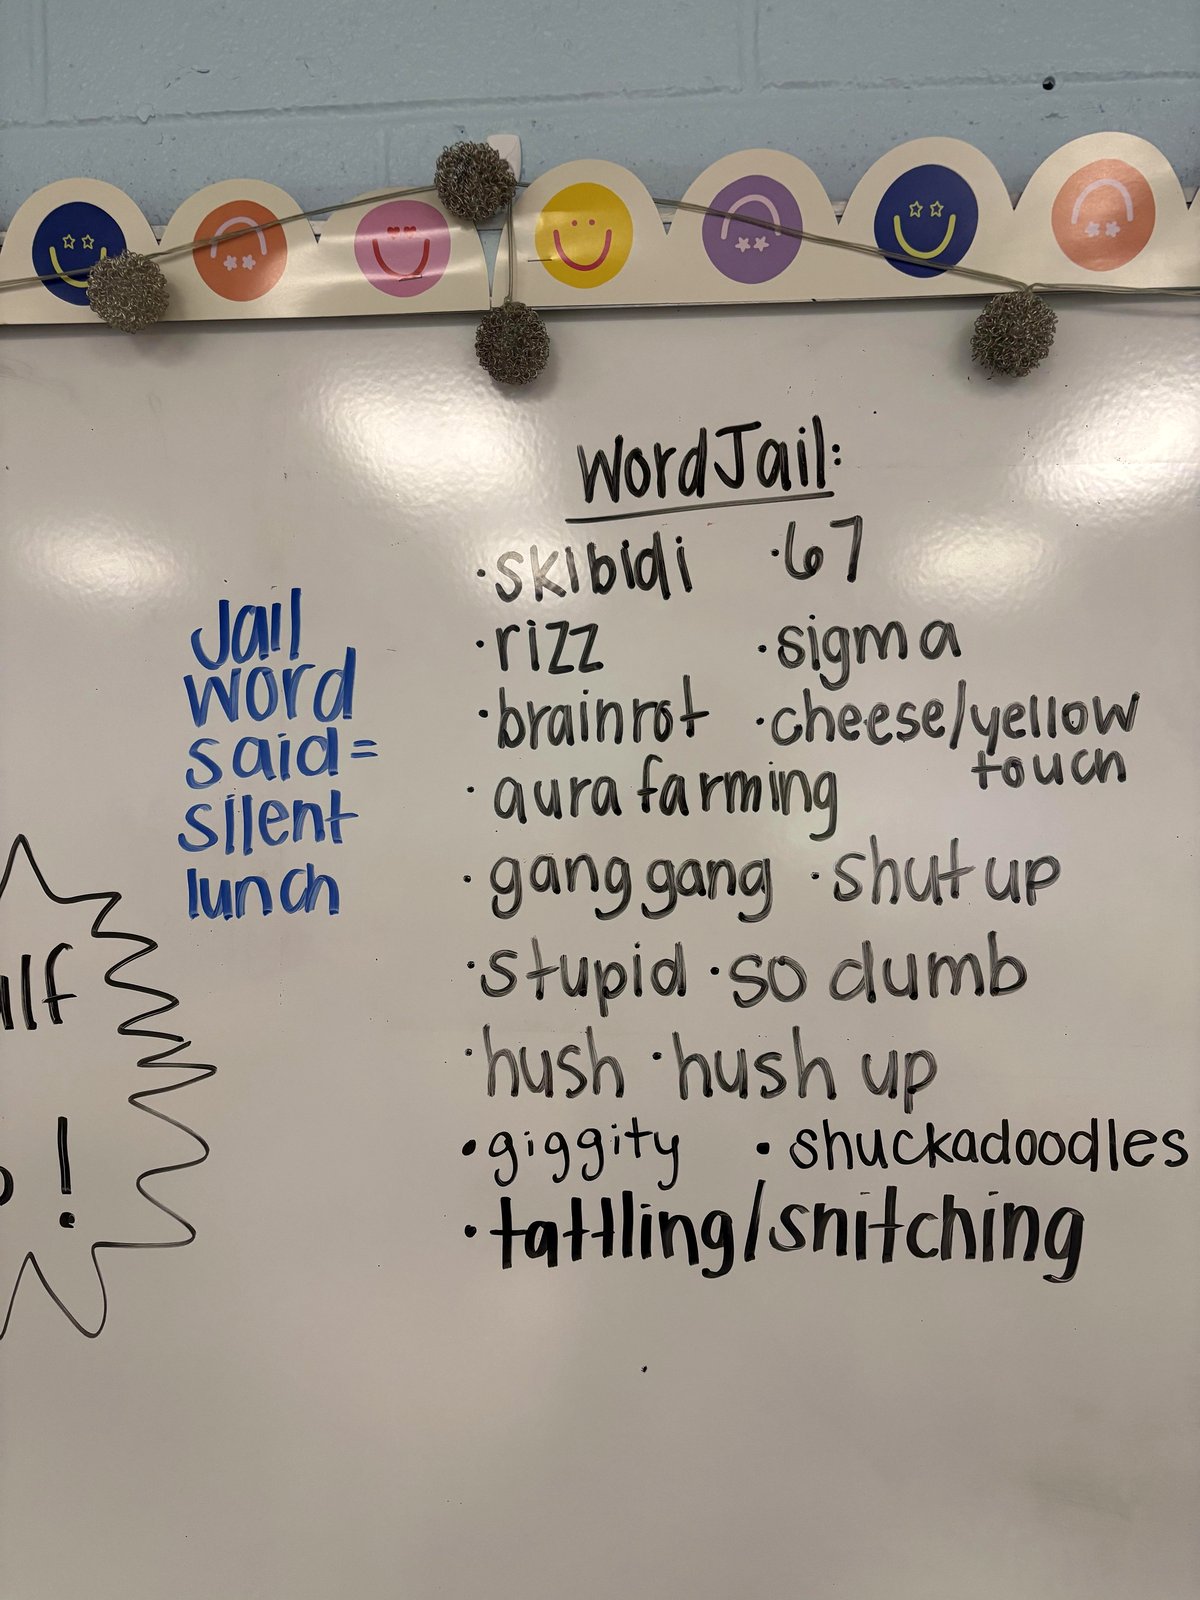 Word Jail:
• skibidi • 67
• rizz • sigma
• brainrot • cheese/yellow
touch
• aura farming
• gang gang • shut up
• stupid • so dumb
• hush • hush up
• giggity • shuckadoodles
• tattling/snitching
Jail
word
said=
silent
lunch
!